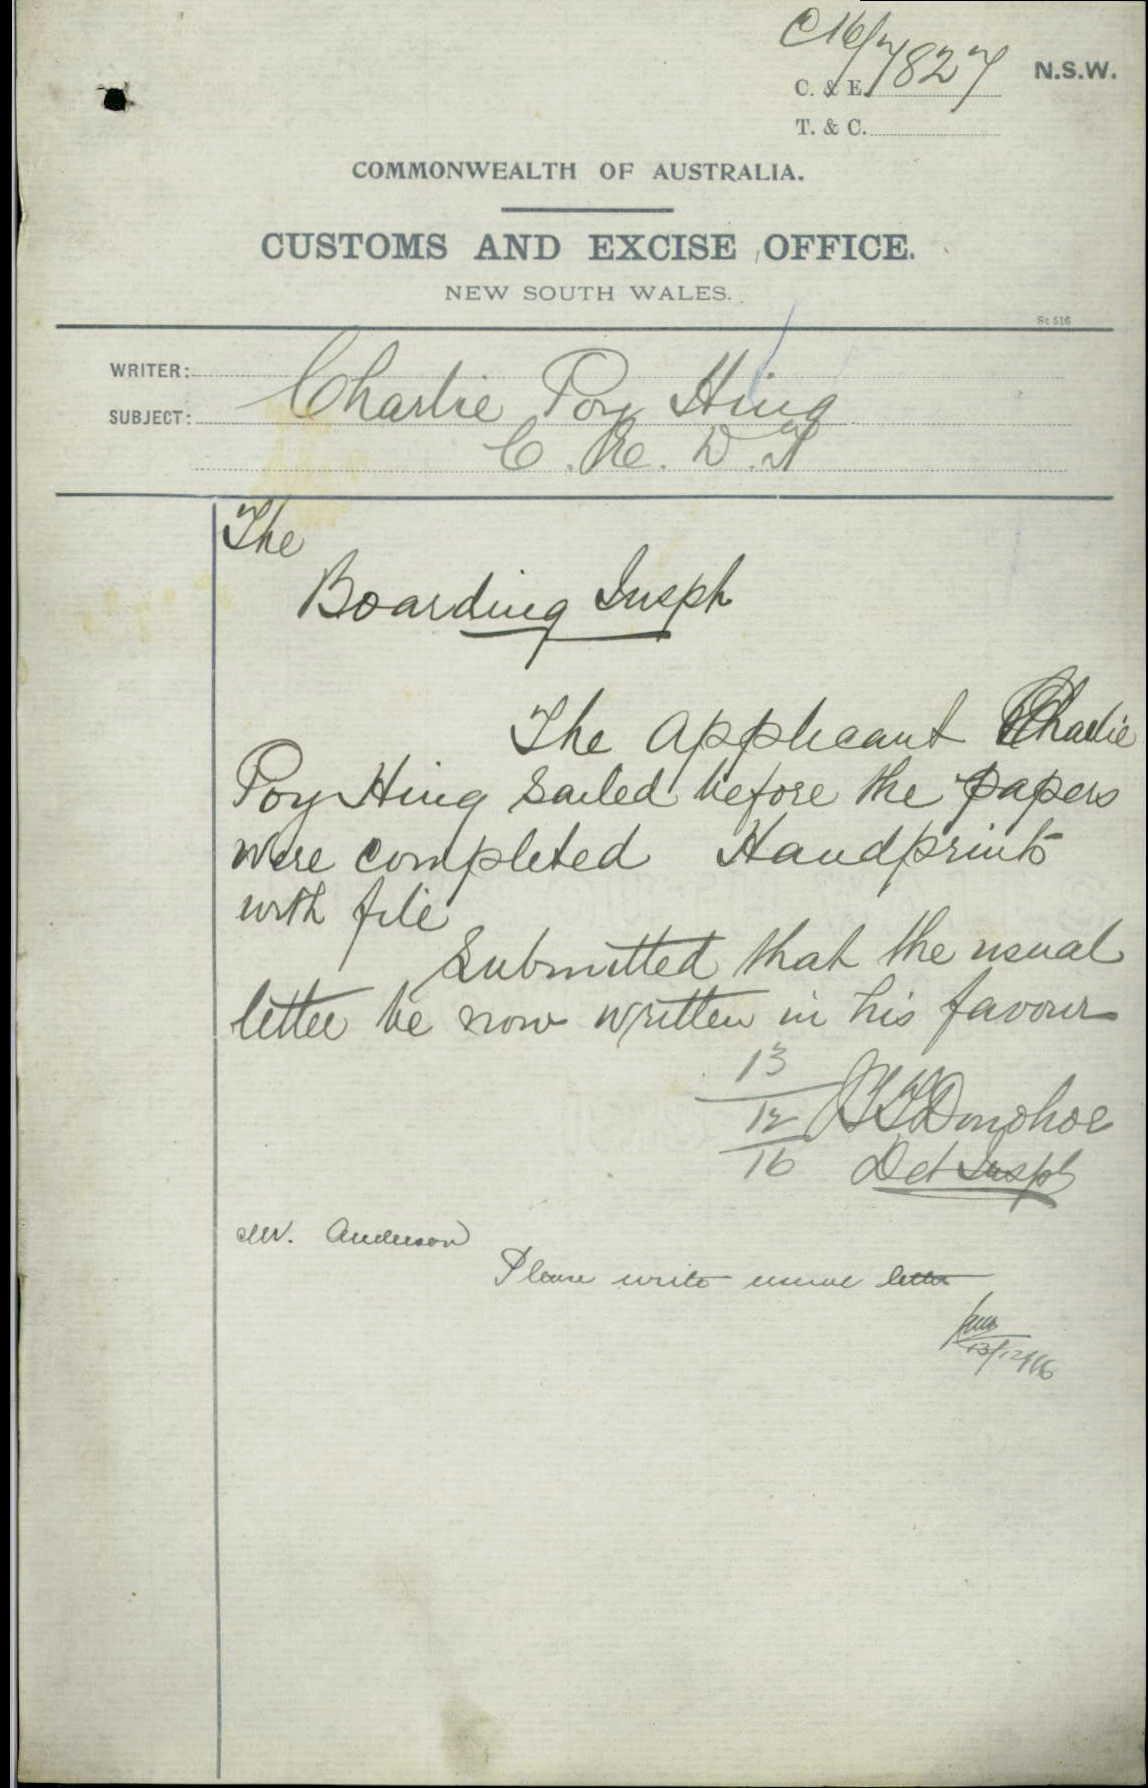 C16/7827
C. & E. N.S.W.
T. & C.
COMMONWEALTH OF AUSTRALIA.
CUSTOMS AND EXCISE OFFICE.
NEW SOUTH WALES.
Sc 516
WRITER:
SUBJECT: Charlie Poy Hing
C. E. D. T
The
Boarding Inspr
The applicant Charlie
Poy Hing sailed before the papers
were completed Handprints
with file
Submitted that the usual
letter be now written in his favour
13
12
16
Donohoe
Det Inspr
Mr. Anderson
Please write usual letter
13/12/16